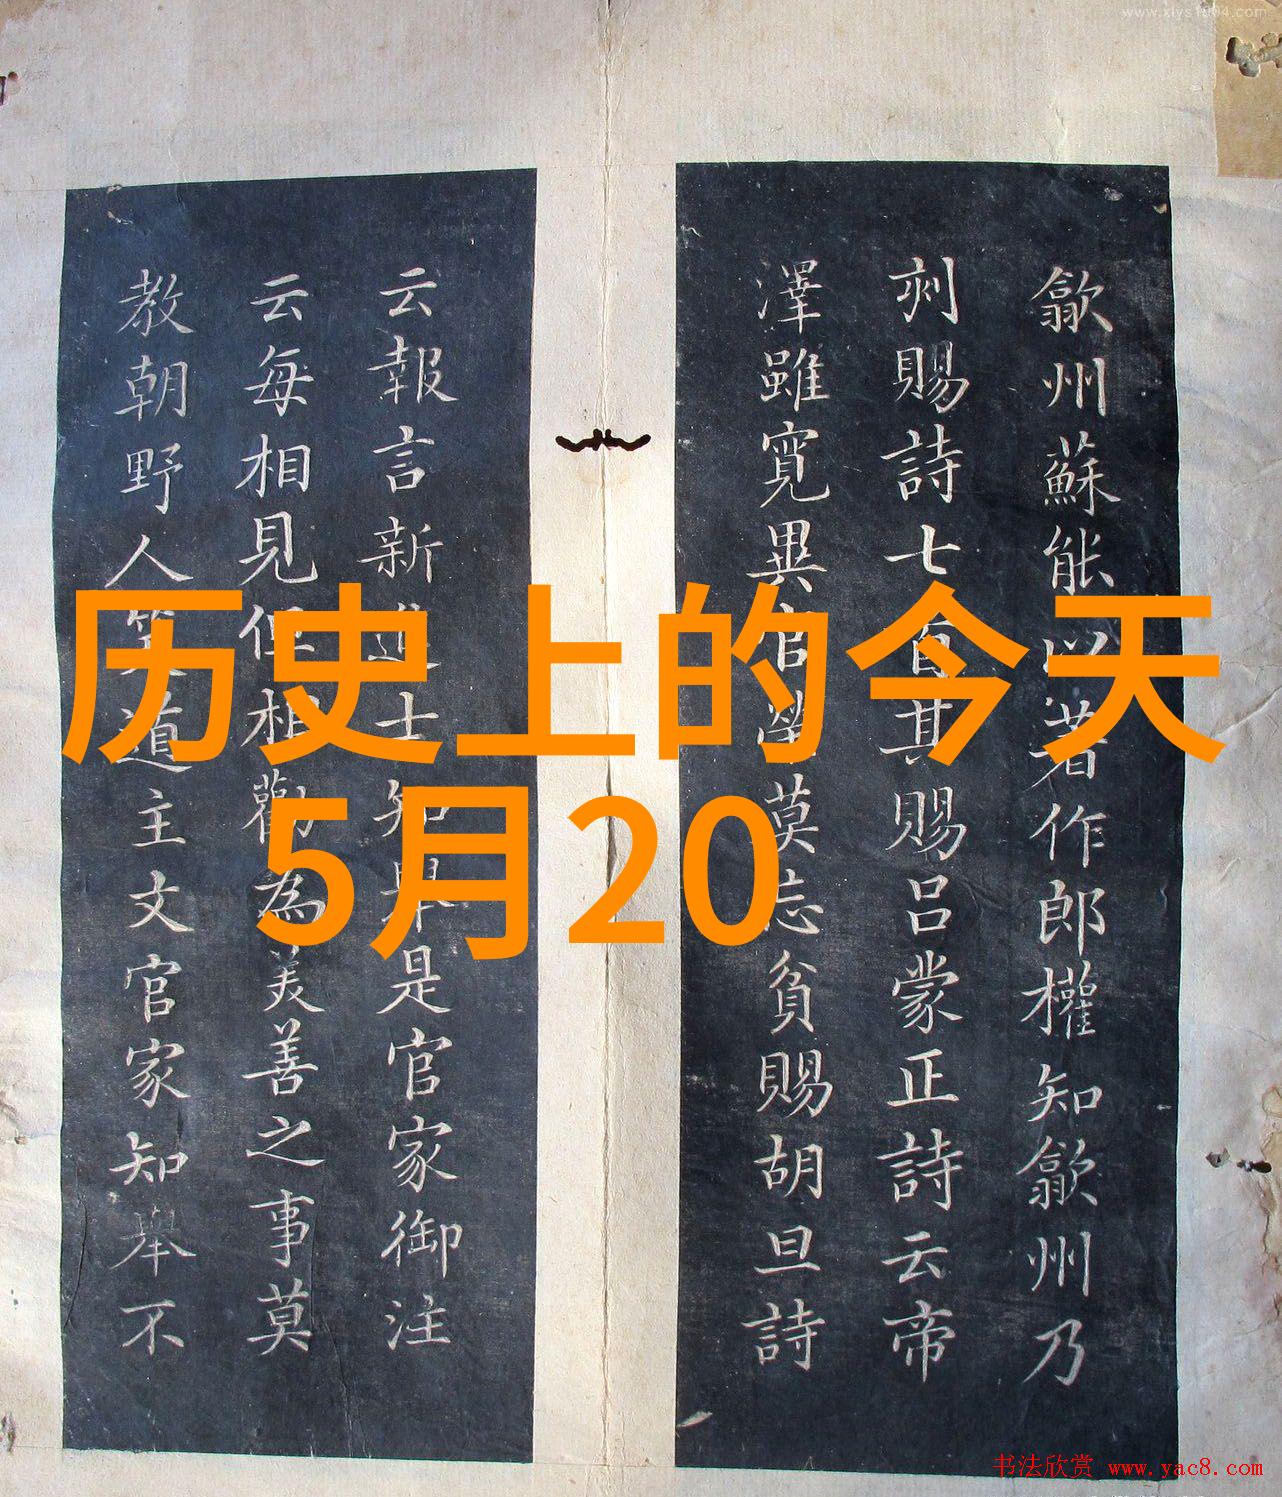 歙州蘇能以著作郎權知歙州乃
刾賜詩七首其賜呂蒙正詩云帝
澤雖寛異官榮莫忘貧賜胡旦詩
云報言新進士知舉是官家御注
云每相見但相勸為美善之事莫
教朝野人笑道主文官家知舉不
历史上的今天
5月20
书法欣赏 www.yac8.com